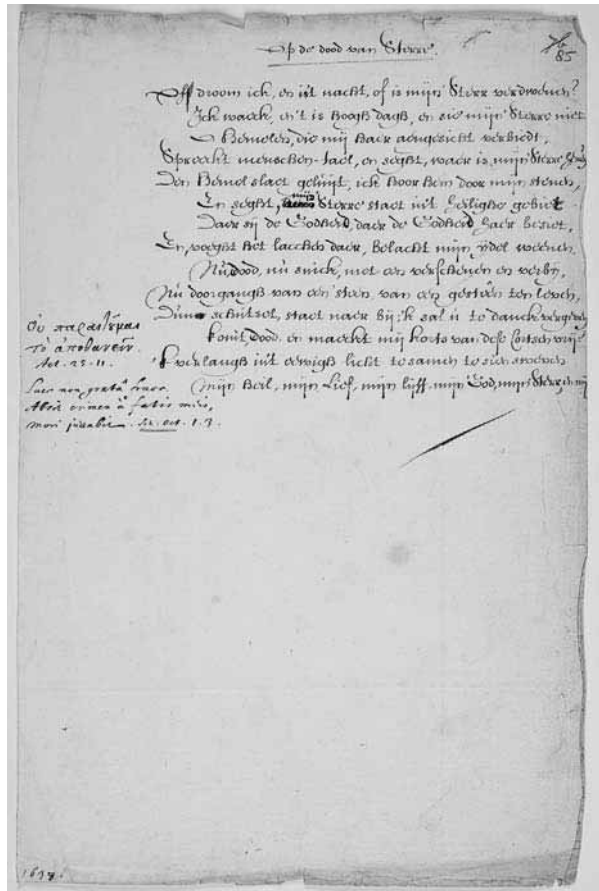 Op de dood van Sterre.
85
Off droom ick, en is't nacht, of is mijn' Sterr verdwenen?
Ick waeck, en 't is hoogh dagh, en sie mijn' Sterre niet
O Hemelen, die mij haer aengesicht verbiedt,
Spreeckt menschen-tael, en seght, waer is mijn' Sterre henen?
Den Hemel slaet geluijt, ick hoor hem door mijn stenen,
En seght, mijn' Sterre staet in't heilighe gebiet
Daer sij de Godheid, daer de Godheid haer besiet,
En, voeght het lacchen daer, belacht mijn ijdel weenen.
Nu, dood, nu snick, met een verschenen en verbij,
Nu doorgangh van een' steen, van een gesteen ten leven,
Dunn schutsel, staet naer bij; 'k sal u te danck vergeven,
Komt, dood, en maeckt mij korts van dese Cortsen vrij
'k verlangh in't eewigh licht te samen te sien sweven
Mijn heil, mijn Lief, mijn lijff, mijn' God, mijn' Sterr, en mij
Οὐ παραιτοῦμαι
τὸ ἀποθανεῖν
Act. 25. 11.
Luce non gratâ fruor.
à fatis meis,
mori Oct. 1. 3.